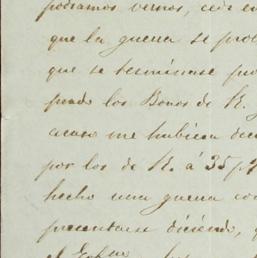 podriamos vernos, cede en
que la guerra se pro
que se terminase pro
pendo los Bonos de R.
acaso me hubiera deci
por los de R. á 35 p.
hecho una guerra con
presentarse diciendo, q
el